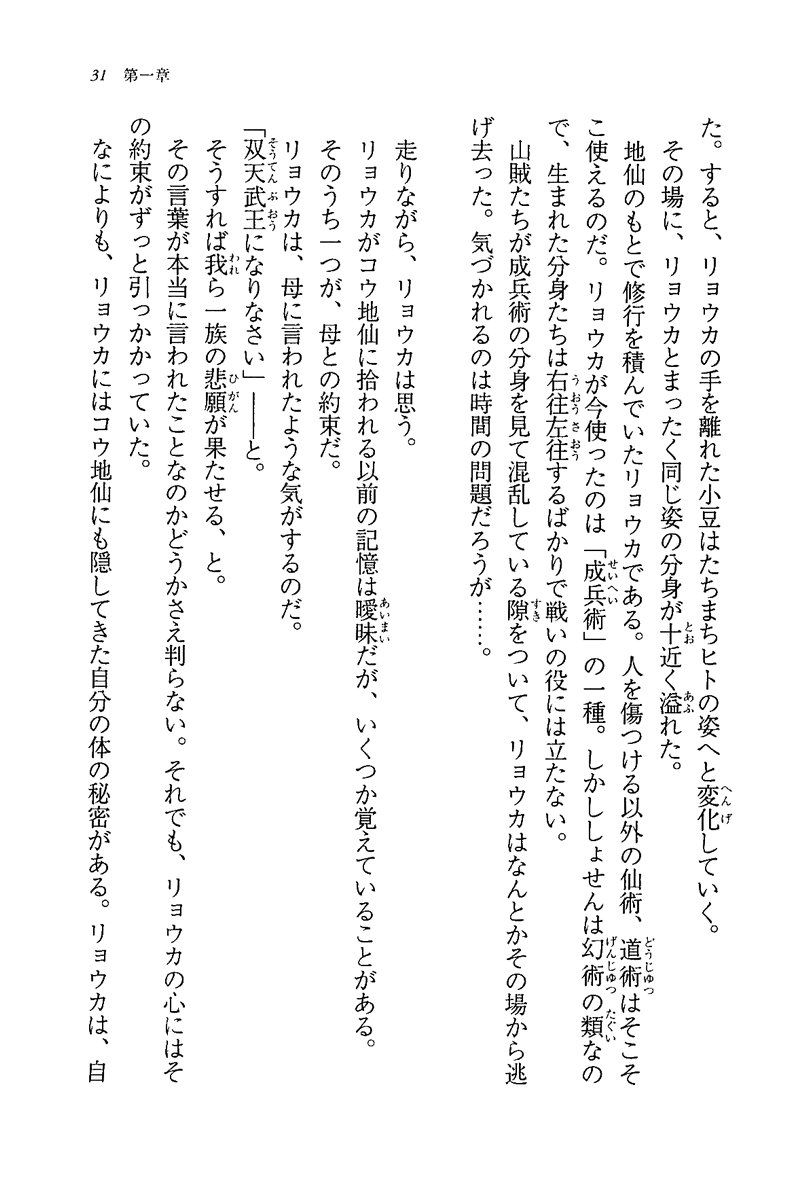 31　第一章
た。すると、リョウカの手を離れた小豆はたちまちヒトの姿へと変化していく。
その場に、リョウカとまったく同じ姿の分身が十近く溢れた。
地仙のもとで修行を積んでいたリョウカである。人を傷つける以外の仙術、道術はそこそ
こ使えるのだ。リョウカが今使ったのは「成兵術」の一種。しかししょせんは幻術の類なの
で、生まれた分身たちは右往左往するばかりで戦いの役には立たない。
山賊たちが成兵術の分身を見て混乱している隙をついて、リョウカはなんとかその場から逃
げ去った。気づかれるのは時間の問題だろうが……。
走りながら、リョウカは思う。
リョウカがコウ地仙に拾われる以前の記憶は曖昧だが、いくつか覚えていることがある。
そのうち一つが、母との約束だ。
リョウカは、母に言われたような気がするのだ。
「双天武王になりなさい」――と。
そうすれば我ら一族の悲願が果たせる、と。
その言葉が本当に言われたことなのかどうかさえ判らない。それでも、リョウカの心にはそ
の約束がずっと引っかかっていた。
なによりも、リョウカにはコウ地仙にも隠してきた自分の体の秘密がある。リョウカは、自